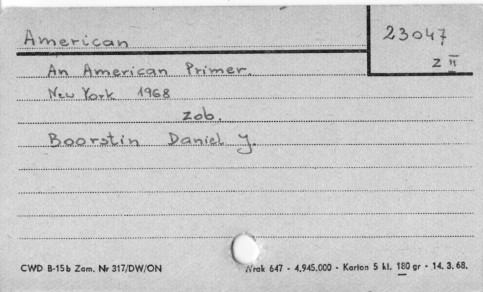 American
23047
z II
An American Primer.
New York 1968
zob.
Boorstin Daniel J.
CWD B-15b Zam. Nr 317/DW/ON
Wrak 647 - 4,945,000 - Karton 5 kl. 180 gr - 14. 3. 68.